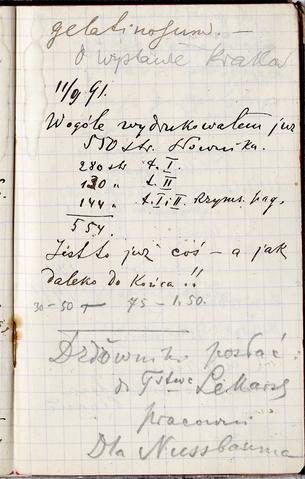 gelatinosum. —
O wystawie Kraków
11/9 91.
W ogóle wydrukowałem już
550 str. Słownika.
280 str. t. I.
130 " t. II
144 " t. I i II. Rzyms. pag.
554.
Jest to już coś – a jak
daleko do Końca!!
30 – 50 – 75 – 1.50.
posłać
do
pracowni
Dla Nussbauma